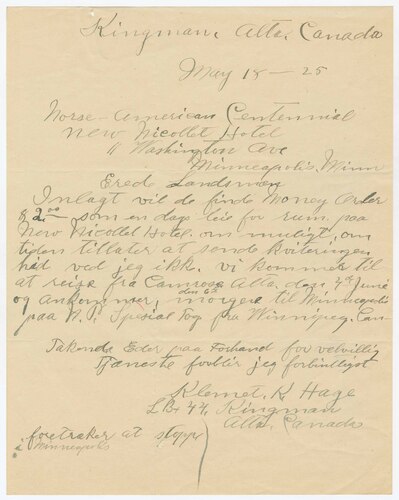 Kingman, Alta, Canada
May 18 – 25
Norse-American Centennial
New Nicollet Hotel
11 Washington Ave
Minneapolis, Minn
Erede Landsmæn
Inlagt vil de finde Money Order
$2.00 som en dags leie for rum paa
New Nicollet Hotel. om muligt, om
tiden tillater at sende kviteringen
hid ved jeg ikk. vi kommer til
at reise fra Camrose Alta, den 3rd June
og ankommer, den 6th morgen til Minneapolis
paa N.P. Spesial Tog fra Winnipeg, Can
Takende Eder paa Forhand for velvillig
Tjeneste forblir jeg forbintligst
Klemet. K Hage
L B. 44, Kingman
Alta, Canada
foretraker at stoppe
i Minneapolis